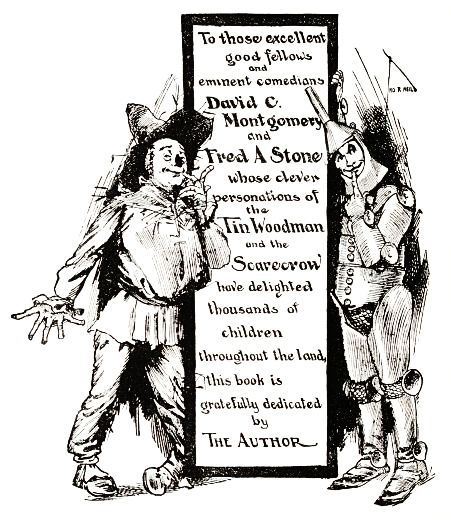 To those excellent
good fellows
and
eminent comedians
David C.
Montgomery
and
Fred A Stone
whose clever
personations of
the
Tin Woodman
and the
Scarecrow
have delighted
thousands of
children
throughout the land,
this book is
gratefully dedicated
by
THE AUTHOR
JNO R NEILL